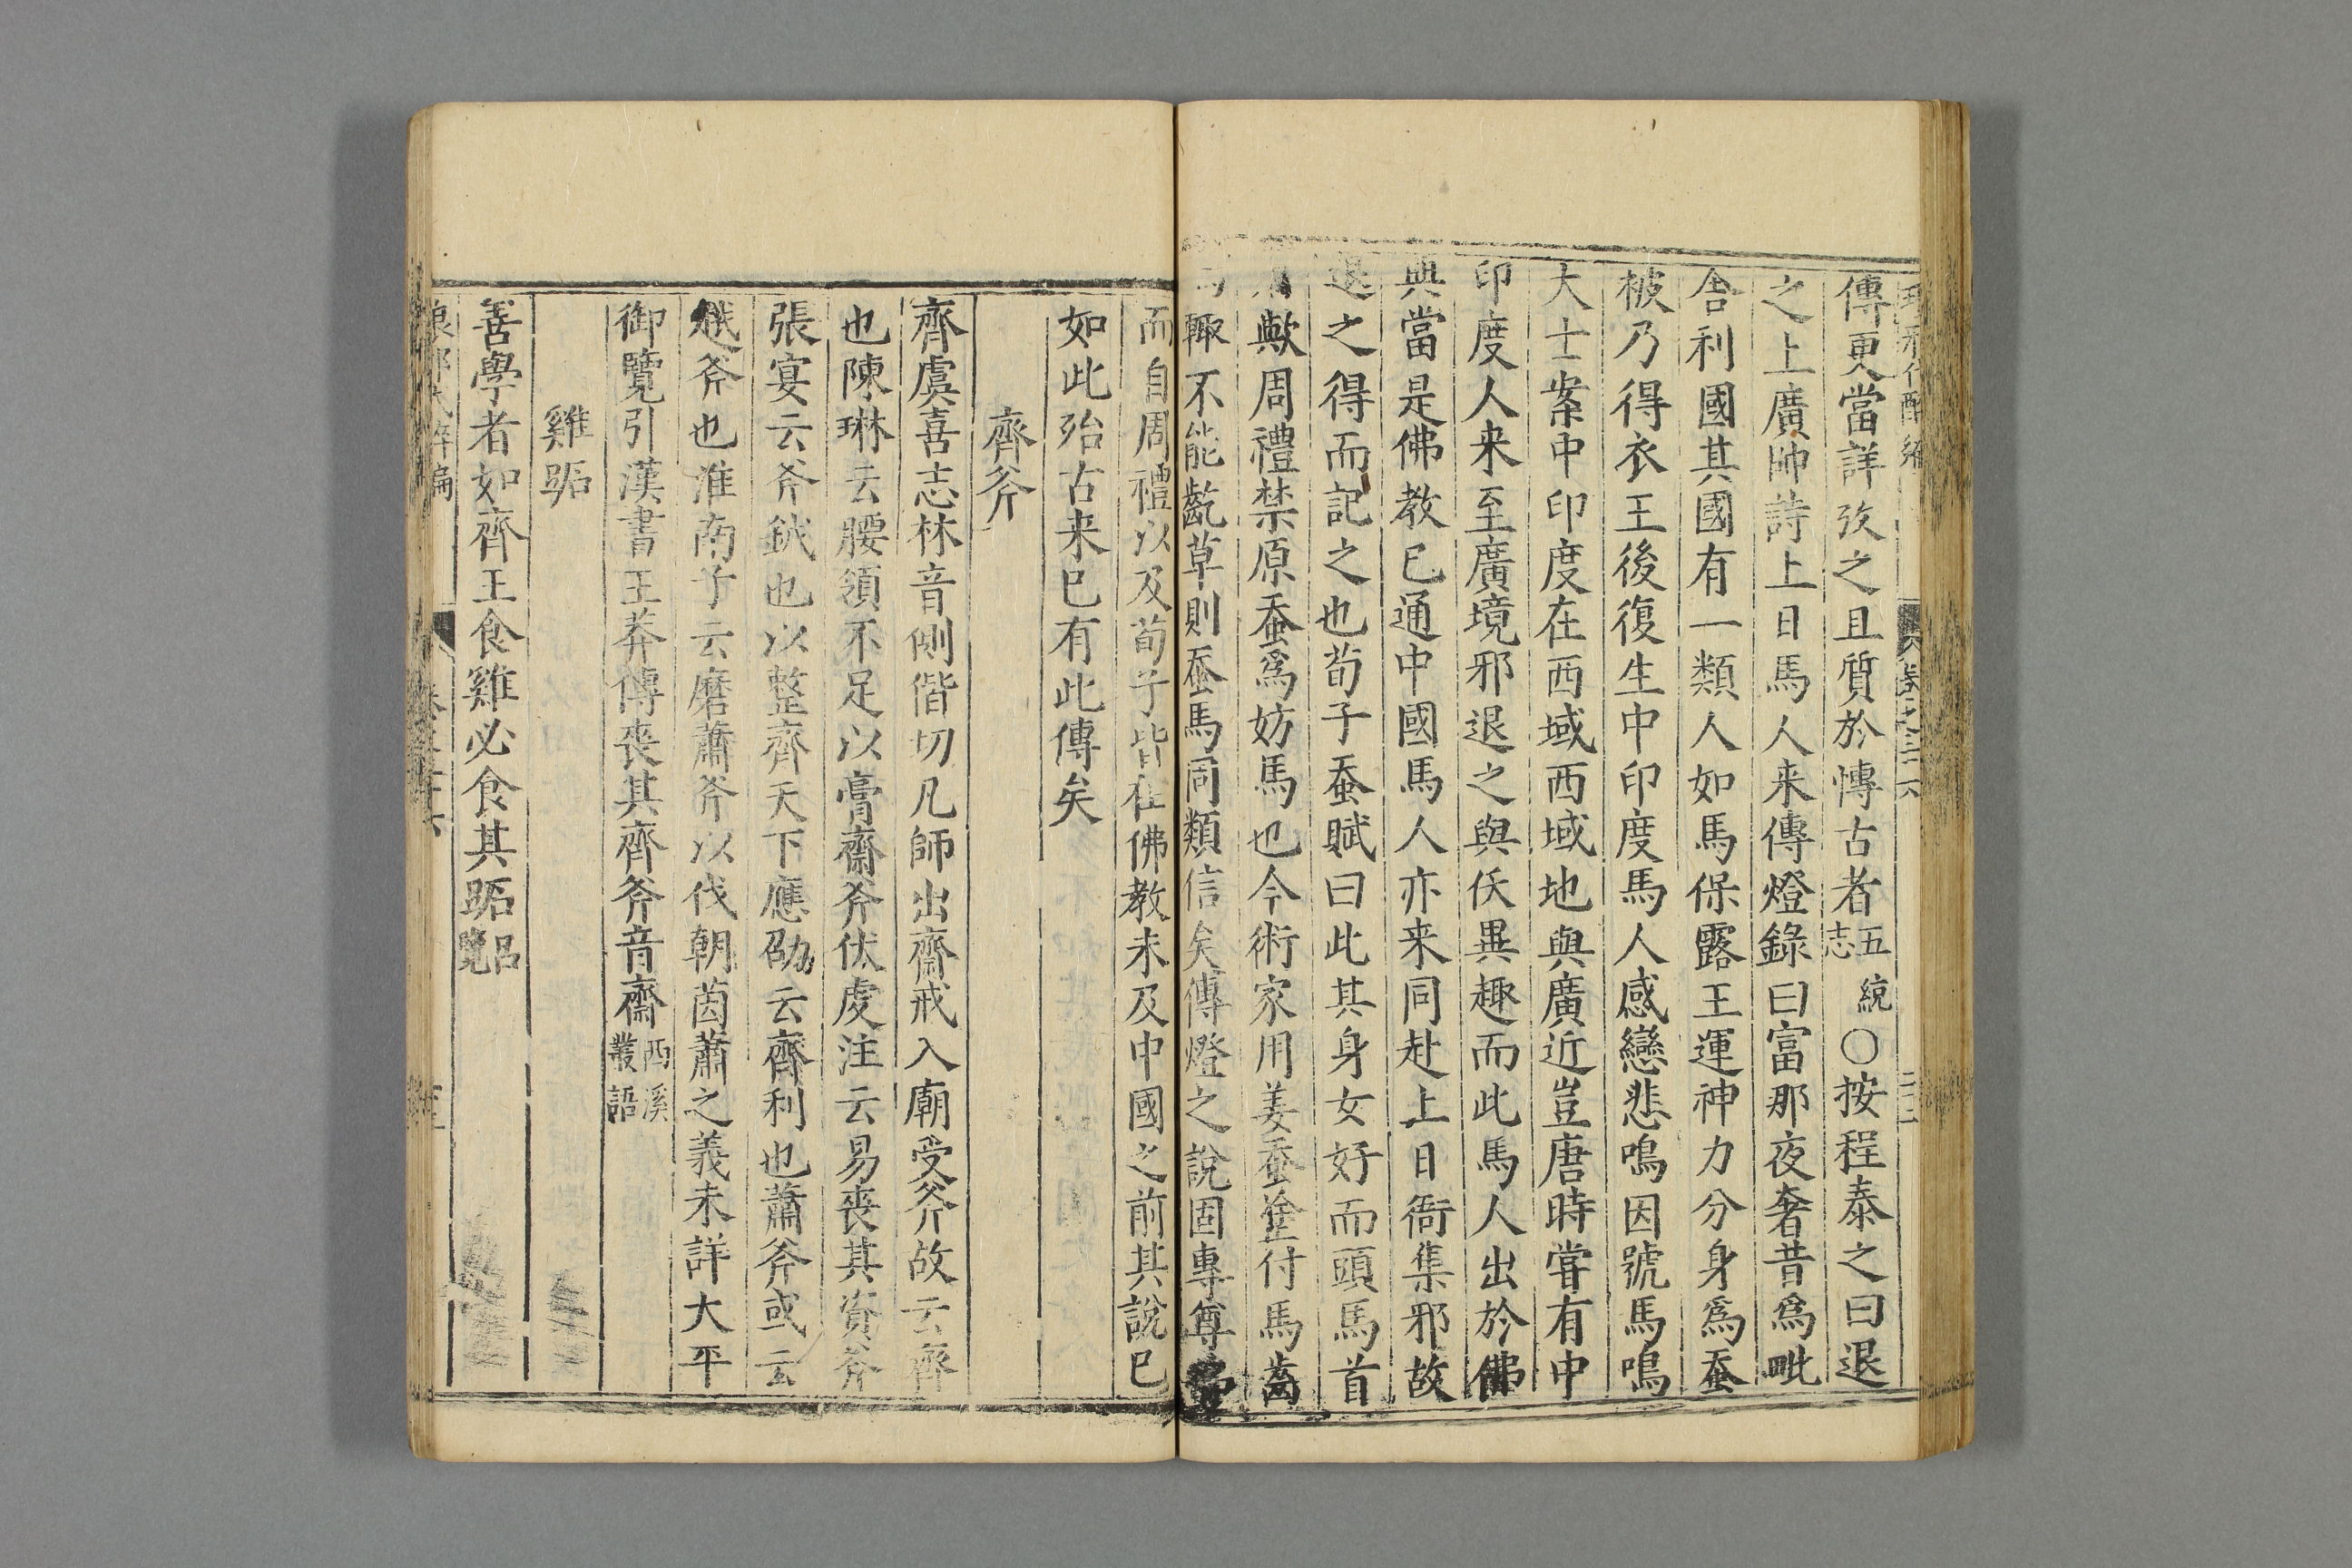 傳更當詳攷之且質於慱古者五統志○按程泰之曰退
之上廣帥詩上日馬人来傳燈錄曰富那夜奢昔爲毗
舍利國其國有一類人如馬保露王運神力分身爲蚕
彼乃得衣王後復生中印度馬人感戀悲鳴因號馬鳴
大士案中印度在西域西域地與廣近豈唐時嘗有中
印度人来至廣境邪退之與仸異趣而此馬人出於佛
與當是佛教已通中國馬人亦来同赴上日衙集邪故
退之得而記之也荀子蚕賦曰此其身女好而頭馬首
歟周禮禁原蚕爲妨馬也今術家用姜蚕塗付馬齒
輙不能齕草則蚕馬同類信矣傳燈之說固專尊
而自周禮以及荀子皆在佛教未及中國之前其說已
如此殆古来已有此傳矣
齊斧
齊虞喜志林音側偕切凡師出齋戒入廟受斧故云齊
也陳琳云腰領不足以膏齋斧伏虔注云易喪其資斧
張宴云斧鉞也以整齊天下應劭云齊利也蕭斧或云
越斧也淮南子云磨蕭斧以伐朝茵蕭之義未詳大平
御覽引漢書王莽傳喪其齊斧音齋西溪叢語
雞跖
善學者如齊王食雞必食其跖呂覽